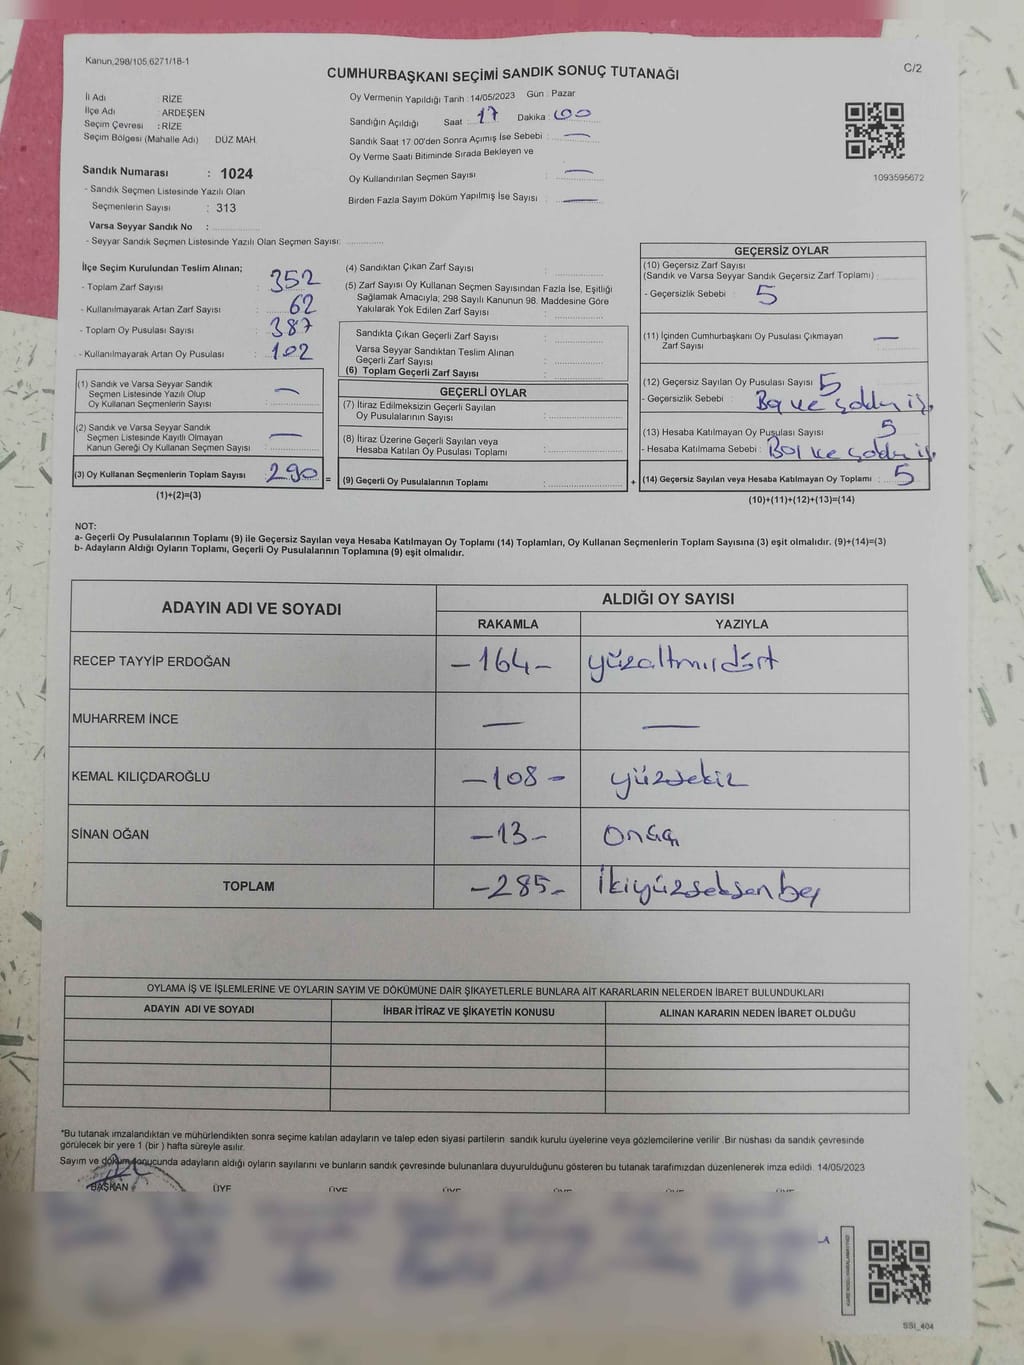 Kanun,298/105,6271/18-1
CUMHURBAŞKANI SEÇİMİ SANDIK SONUÇ TUTANAĞI
C/2
İl Adı RİZE
İlçe Adı : ARDEŞEN
Seçim Çevresi : RİZE
Seçim Bölgesi (Mahalle Adı) DÜZ MAH.
Sandık Numarası : 1024
- Sandık Seçmen Listesinde Yazılı Olan
Seçmenlerin Sayısı : 313
Varsa Seyyar Sandık No :
- Seyyar Sandık Seçmen Listesinde Yazılı Olan Seçmen Sayısı:
Oy Vermenin Yapıldığı Tarih : 14/05/2023 Gün : Pazar
Sandığın Açıldığı Saat : 17 Dakika : 00
Sandık Saat 17.00'den Sonra Açımış İse Sebebi : —
Oy Verme Saati Bitiminde Sırada Bekleyen ve
Oy Kullandırılan Seçmen Sayısı : —
Birden Fazla Sayım Döküm Yapılmış İse Sayısı : —
1093595672
İlçe Seçim Kurulundan Teslim Alınan;
- Toplam Zarf Sayısı : 352
- Kullanılmayarak Artan Zarf Sayısı : 62
- Toplam Oy Pusulası Sayısı : 387
- Kullanılmayarak Artan Oy Pusulası : 102
(1) Sandık ve Varsa Seyyar Sandık
Seçmen Listesinde Yazılı Olup
Oy Kullanan Seçmenlerin Sayısı : —
(2) Sandık ve Varsa Seyyar Sandık
Seçmen Listesinde Kayıtlı Olmayan
Kanun Gereği Oy Kullanan Seçmen Sayısı : —
(3) Oy Kullanan Seçmenlerin Toplam Sayısı : 290 =
(1)+(2)=(3)
(4) Sandıktan Çıkan Zarf Sayısı :
(5) Zarf Sayısı Oy Kullanan Seçmen Sayısından Fazla İse, Eşitliği
Sağlamak Amacıyla; 298 Sayılı Kanunun 98. Maddesine Göre
Yakılarak Yok Edilen Zarf Sayısı :
Sandıkta Çıkan Geçerli Zarf Sayısı :
Varsa Seyyar Sandıktan Teslim Alınan
Geçerli Zarf Sayısı :
(6) Toplam Geçerli Zarf Sayısı :
GEÇERLİ OYLAR
(7) İtiraz Edilmeksizin Geçerli Sayılan
Oy Pusulalarının Sayısı :
(8) İtiraz Üzerine Geçerli Sayılan veya
Hesaba Katılan Oy Pusulası Toplamı :
(9) Geçerli Oy Pusulalarının Toplamı : +
GEÇERSİZ OYLAR
(10) Geçersiz Zarf Sayısı
(Sandık ve Varsa Seyyar Sandık Geçersiz Zarf Toplamı) :
- Geçersizlik Sebebi : 5
(11) İçinden Cumhurbaşkanı Oy Pusulası Çıkmayan
Zarf Sayısı : —
(12) Geçersiz Sayılan Oy Pusulası Sayısı : 5
- Geçersizlik Sebebi :
(13) Hesaba Katılmayan Oy Pusulası Sayısı : 5
- Hesaba Katılmama Sebebi :
(14) Geçersiz Sayılan veya Hesaba Katılmayan Oy Toplamı : 5
(10)+(11)+(12)+(13)=(14)
NOT:
a- Geçerli Oy Pusulalarının Toplamı (9) ile Geçersiz Sayılan veya Hesaba Katılmayan Oy Toplamı (14) Toplamları, Oy Kullanan Seçmenlerin Toplam Sayısına (3) eşit olmalıdır. (9)+(14)=(3)
b- Adayların Aldığı Oyların Toplamı, Geçerli Oy Pusulalarının Toplamına (9) eşit olmalıdır.
ADAYIN ADI VE SOYADI
ALDIĞI OY SAYISI
RAKAMLA YAZIYLA
RECEP TAYYİP ERDOĞAN -164- yüzaltmışdört
MUHARREM İNCE — —
KEMAL KILIÇDAROĞLU -108- yüzsekiz
SİNAN OĞAN -13- Onüç
TOPLAM -285- İkiyüzseksenbeş
OYLAMA İŞ VE İŞLEMLERİNE VE OYLARIN SAYIM VE DÖKÜMÜNE DAİR ŞİKAYETLERLE BUNLARA AİT KARARLARIN NELERDEN İBARET BULUNDUKLARI
ADAYIN ADI VE SOYADI İHBAR İTİRAZ VE ŞİKAYETİN KONUSU ALINAN KARARIN NEDEN İBARET OLDUĞU
*Bu tutanak imzalandıktan ve mühürlendikten sonra seçime katılan adayların ve talep eden siyasi partilerin sandık kurulu üyelerine veya gözlemcilerine verilir .Bir nüshası da sandık çevresinde
görülecek bir yere 1 (bir ) hafta süreyle asılır.
Sayım ve döküm sonucunda adayların aldığı oyların sayılarını ve bunların sandık çevresinde bulunanlara duyurulduğunu gösteren bu tutanak tarafımızdan düzenlenerek imza edildi. 14/05/2023
BAŞKAN ÜYE ÜYE ÜYE ÜYE ÜYE ÜYE
SSI_404